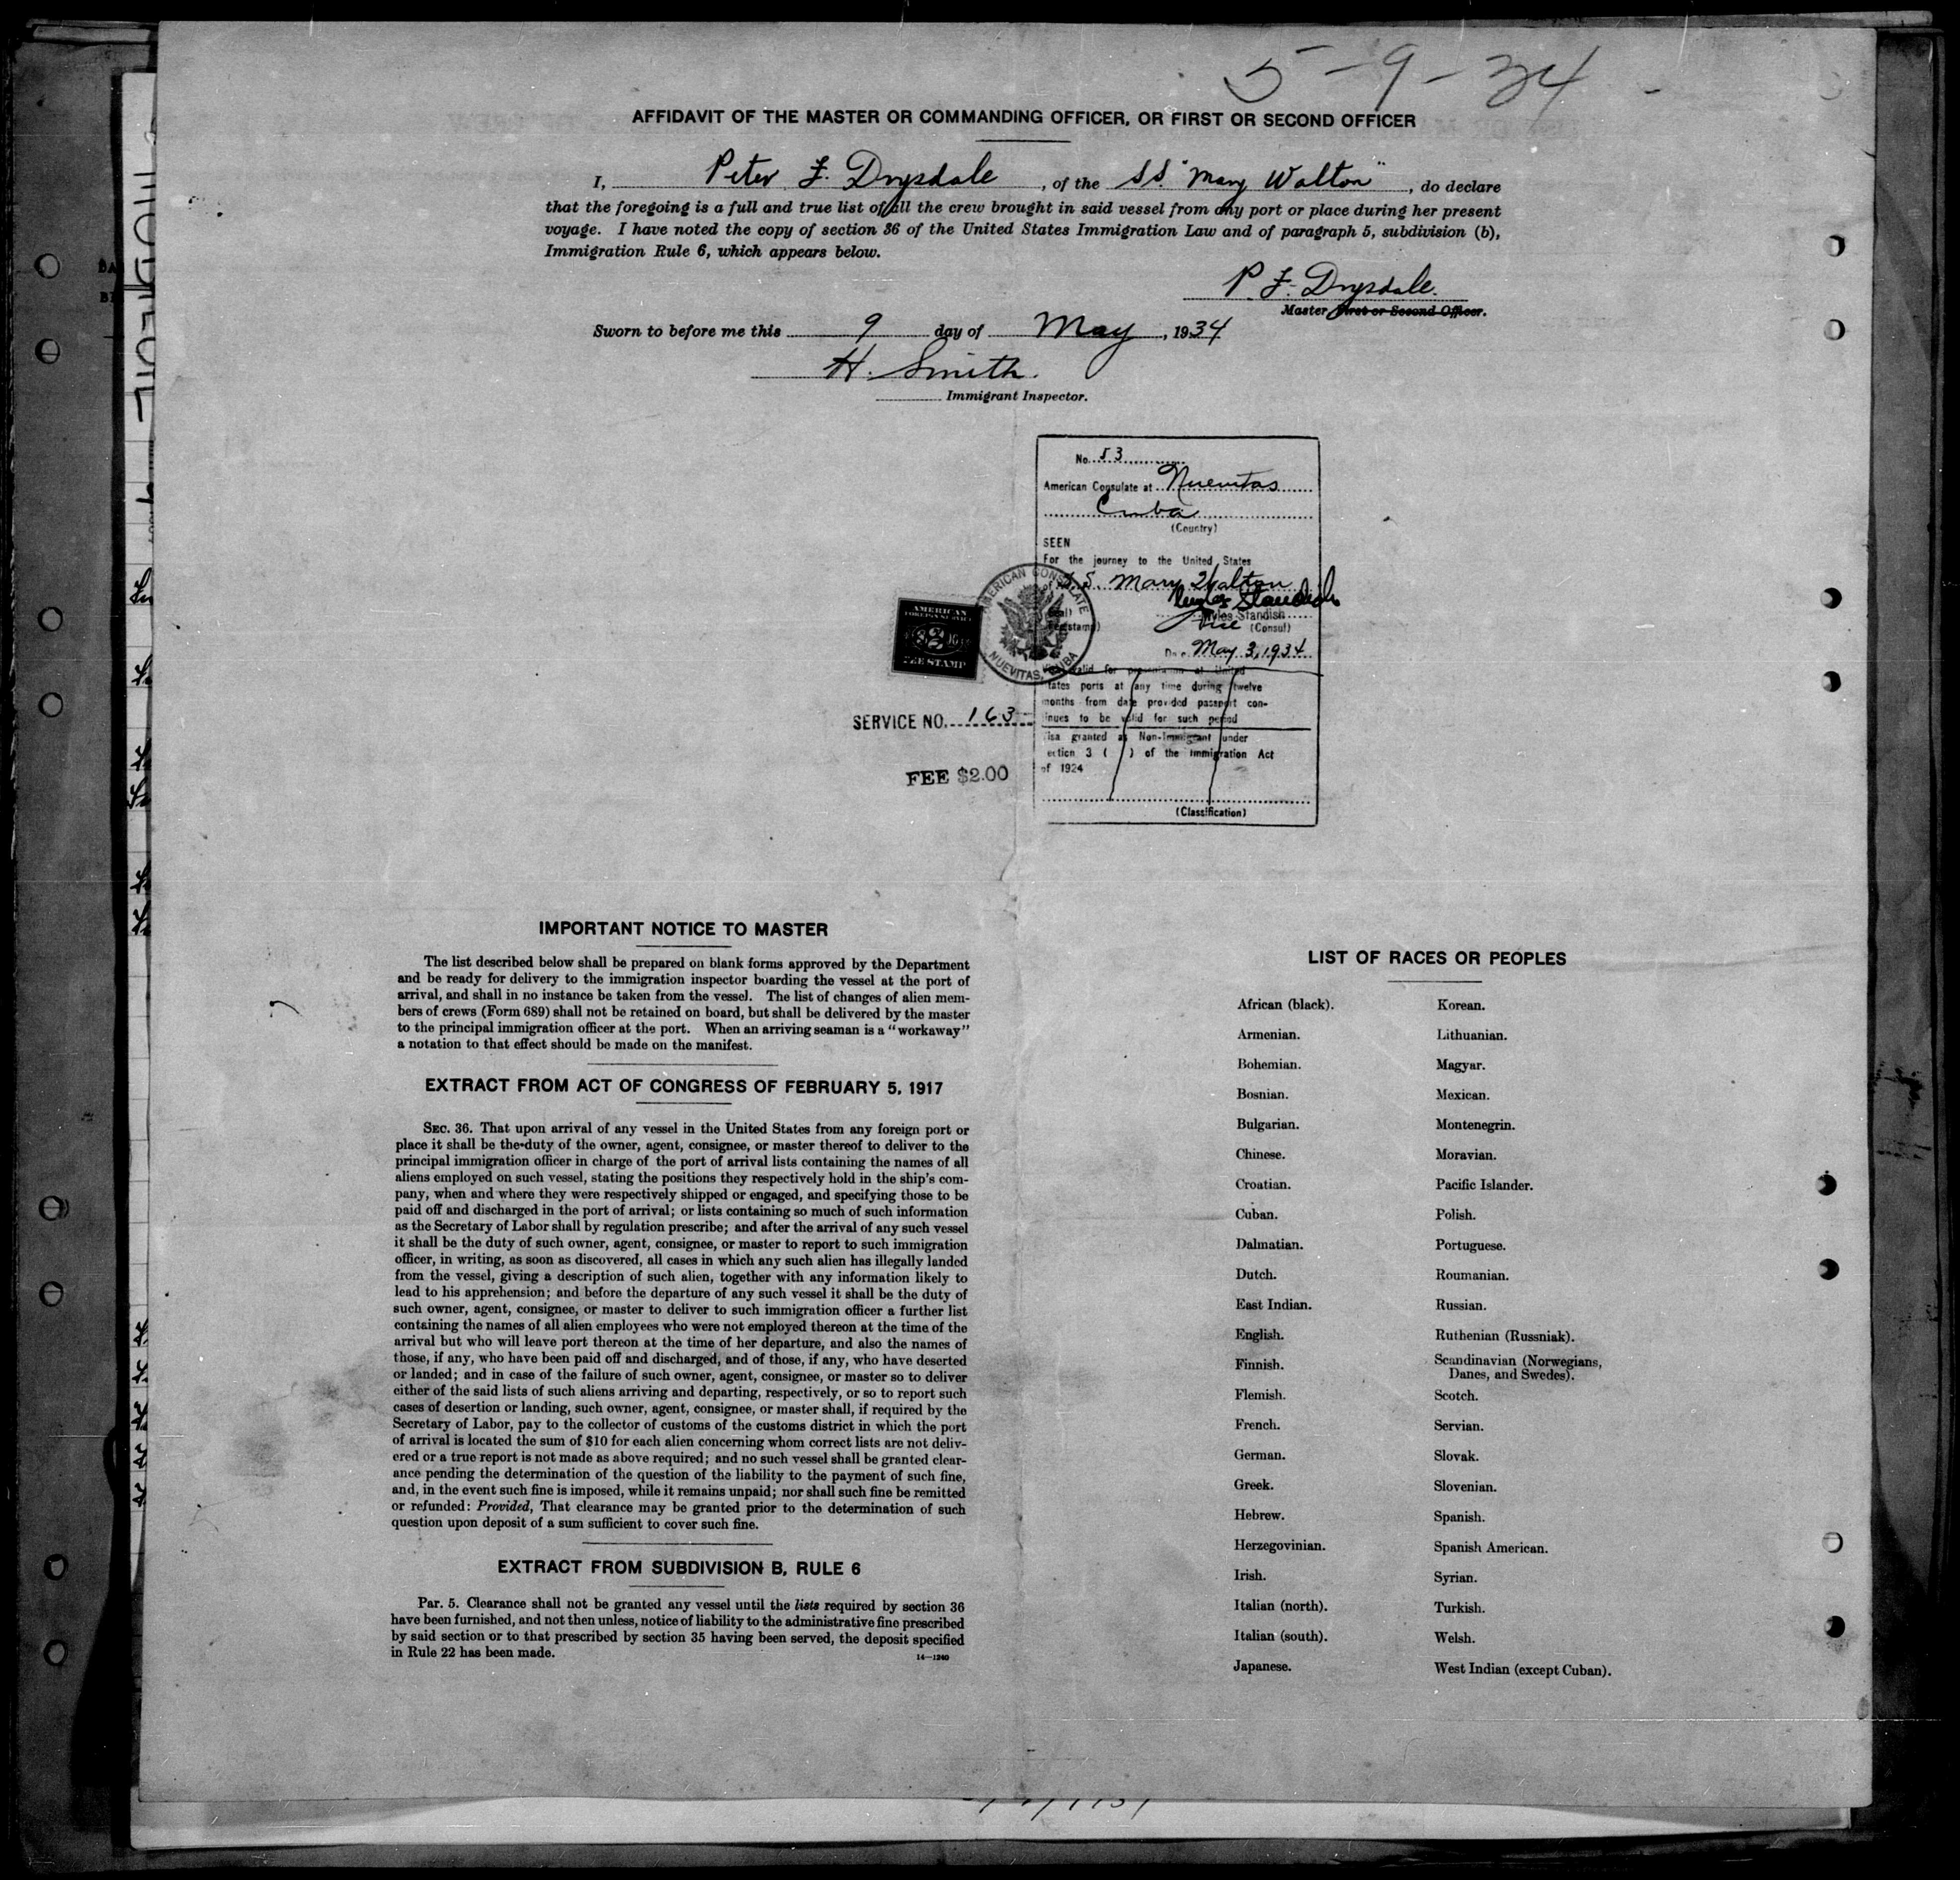 5-9-34
AFFIDAVIT OF THE MASTER OR COMMANDING OFFICER, OR FIRST OR SECOND OFFICER
I, Peter F. Drysdale, of the SS. "Mary Walton", do declare
that the foregoing is a full and true list of all the crew brought in said vessel from any port or place during her present
voyage. I have noted the copy of section 36 of the United States Immigration Law and of paragraph 5, subdivision (b),
Immigration Rule 6, which appears below.
P. F. Drysdale.
Master, First or Second Officer.
Sworn to before me this 9 day of May, 1934
H. Smith.
Immigrant Inspector.
No. 53
American Consulate at Nuevitas
Cuba
(Country)
SEEN
For the journey to the United States
S.S. Mary Walton
Myles Standish
Myles Standish
Vice (Consul)
May 3, 1934
AMERICAN CONSULATE
NUEVITAS, CUBA
AMERICAN
FOREIGN SERVICE
FEE STAMP
valid for at United
tates ports at any time during twelve
months from date provided passport con-
inues to be valid for such period
isa granted as Non-Immigrant under
ection 3 ( ) of the Immigration Act
of 1924
(Classification)
SERVICE NO. 163
FEE $2.00
IMPORTANT NOTICE TO MASTER
The list described below shall be prepared on blank forms approved by the Department
and be ready for delivery to the immigration inspector boarding the vessel at the port of
arrival, and shall in no instance be taken from the vessel. The list of changes of alien mem-
bers of crews (Form 689) shall not be retained on board, but shall be delivered by the master
to the principal immigration officer at the port. When an arriving seaman is a "workaway"
a notation to that effect should be made on the manifest.
EXTRACT FROM ACT OF CONGRESS OF FEBRUARY 5, 1917
SEC. 36. That upon arrival of any vessel in the United States from any foreign port or
place it shall be the duty of the owner, agent, consignee, or master thereof to deliver to the
principal immigration officer in charge of the port of arrival lists containing the names of all
aliens employed on such vessel, stating the positions they respectively hold in the ship's com-
pany, when and where they were respectively shipped or engaged, and specifying those to be
paid off and discharged in the port of arrival; or lists containing so much of such information
as the Secretary of Labor shall by regulation prescribe; and after the arrival of any such vessel
it shall be the duty of such owner, agent, consignee, or master to report to such immigration
officer, in writing, as soon as discovered, all cases in which any such alien has illegally landed
from the vessel, giving a description of such alien, together with any information likely to
lead to his apprehension; and before the departure of any such vessel it shall be the duty of
such owner, agent, consignee, or master to deliver to such immigration officer a further list
containing the names of all alien employees who were not employed thereon at the time of the
arrival but who will leave port thereon at the time of her departure, and also the names of
those, if any, who have been paid off and discharged, and of those, if any, who have deserted
or landed; and in case of the failure of such owner, agent, consignee, or master so to deliver
either of the said lists of such aliens arriving and departing, respectively, or so to report such
cases of desertion or landing, such owner, agent, consignee, or master shall, if required by the
Secretary of Labor, pay to the collector of customs of the customs district in which the port
of arrival is located the sum of $10 for each alien concerning whom correct lists are not deliv-
ered or a true report is not made as above required; and no such vessel shall be granted clear-
ance pending the determination of the question of the liability to the payment of such fine,
and, in the event such fine is imposed, while it remains unpaid; nor shall such fine be remitted
or refunded: Provided, That clearance may be granted prior to the determination of such
question upon deposit of a sum sufficient to cover such fine.
EXTRACT FROM SUBDIVISION B, RULE 6
Par. 5. Clearance shall not be granted any vessel until the lists required by section 36
have been furnished, and not then unless, notice of liability to the administrative fine prescribed
by said section or to that prescribed by section 35 having been served, the deposit specified
in Rule 22 has been made.
14—1240
LIST OF RACES OR PEOPLES
African (black).
Armenian.
Bohemian.
Bosnian.
Bulgarian.
Chinese.
Croatian.
Cuban.
Dalmatian.
Dutch.
East Indian.
English.
Finnish.
Flemish.
French.
German.
Greek.
Hebrew.
Herzegovinian.
Irish.
Italian (north).
Italian (south).
Japanese.
Korean.
Lithuanian.
Magyar.
Mexican.
Montenegrin.
Moravian.
Pacific Islander.
Polish.
Portuguese.
Roumanian.
Russian.
Ruthenian (Russniak).
Scandinavian (Norwegians,
Danes, and Swedes).
Scotch.
Servian.
Slovak.
Slovenian.
Spanish.
Spanish American.
Syrian.
Turkish.
Welsh.
West Indian (except Cuban).